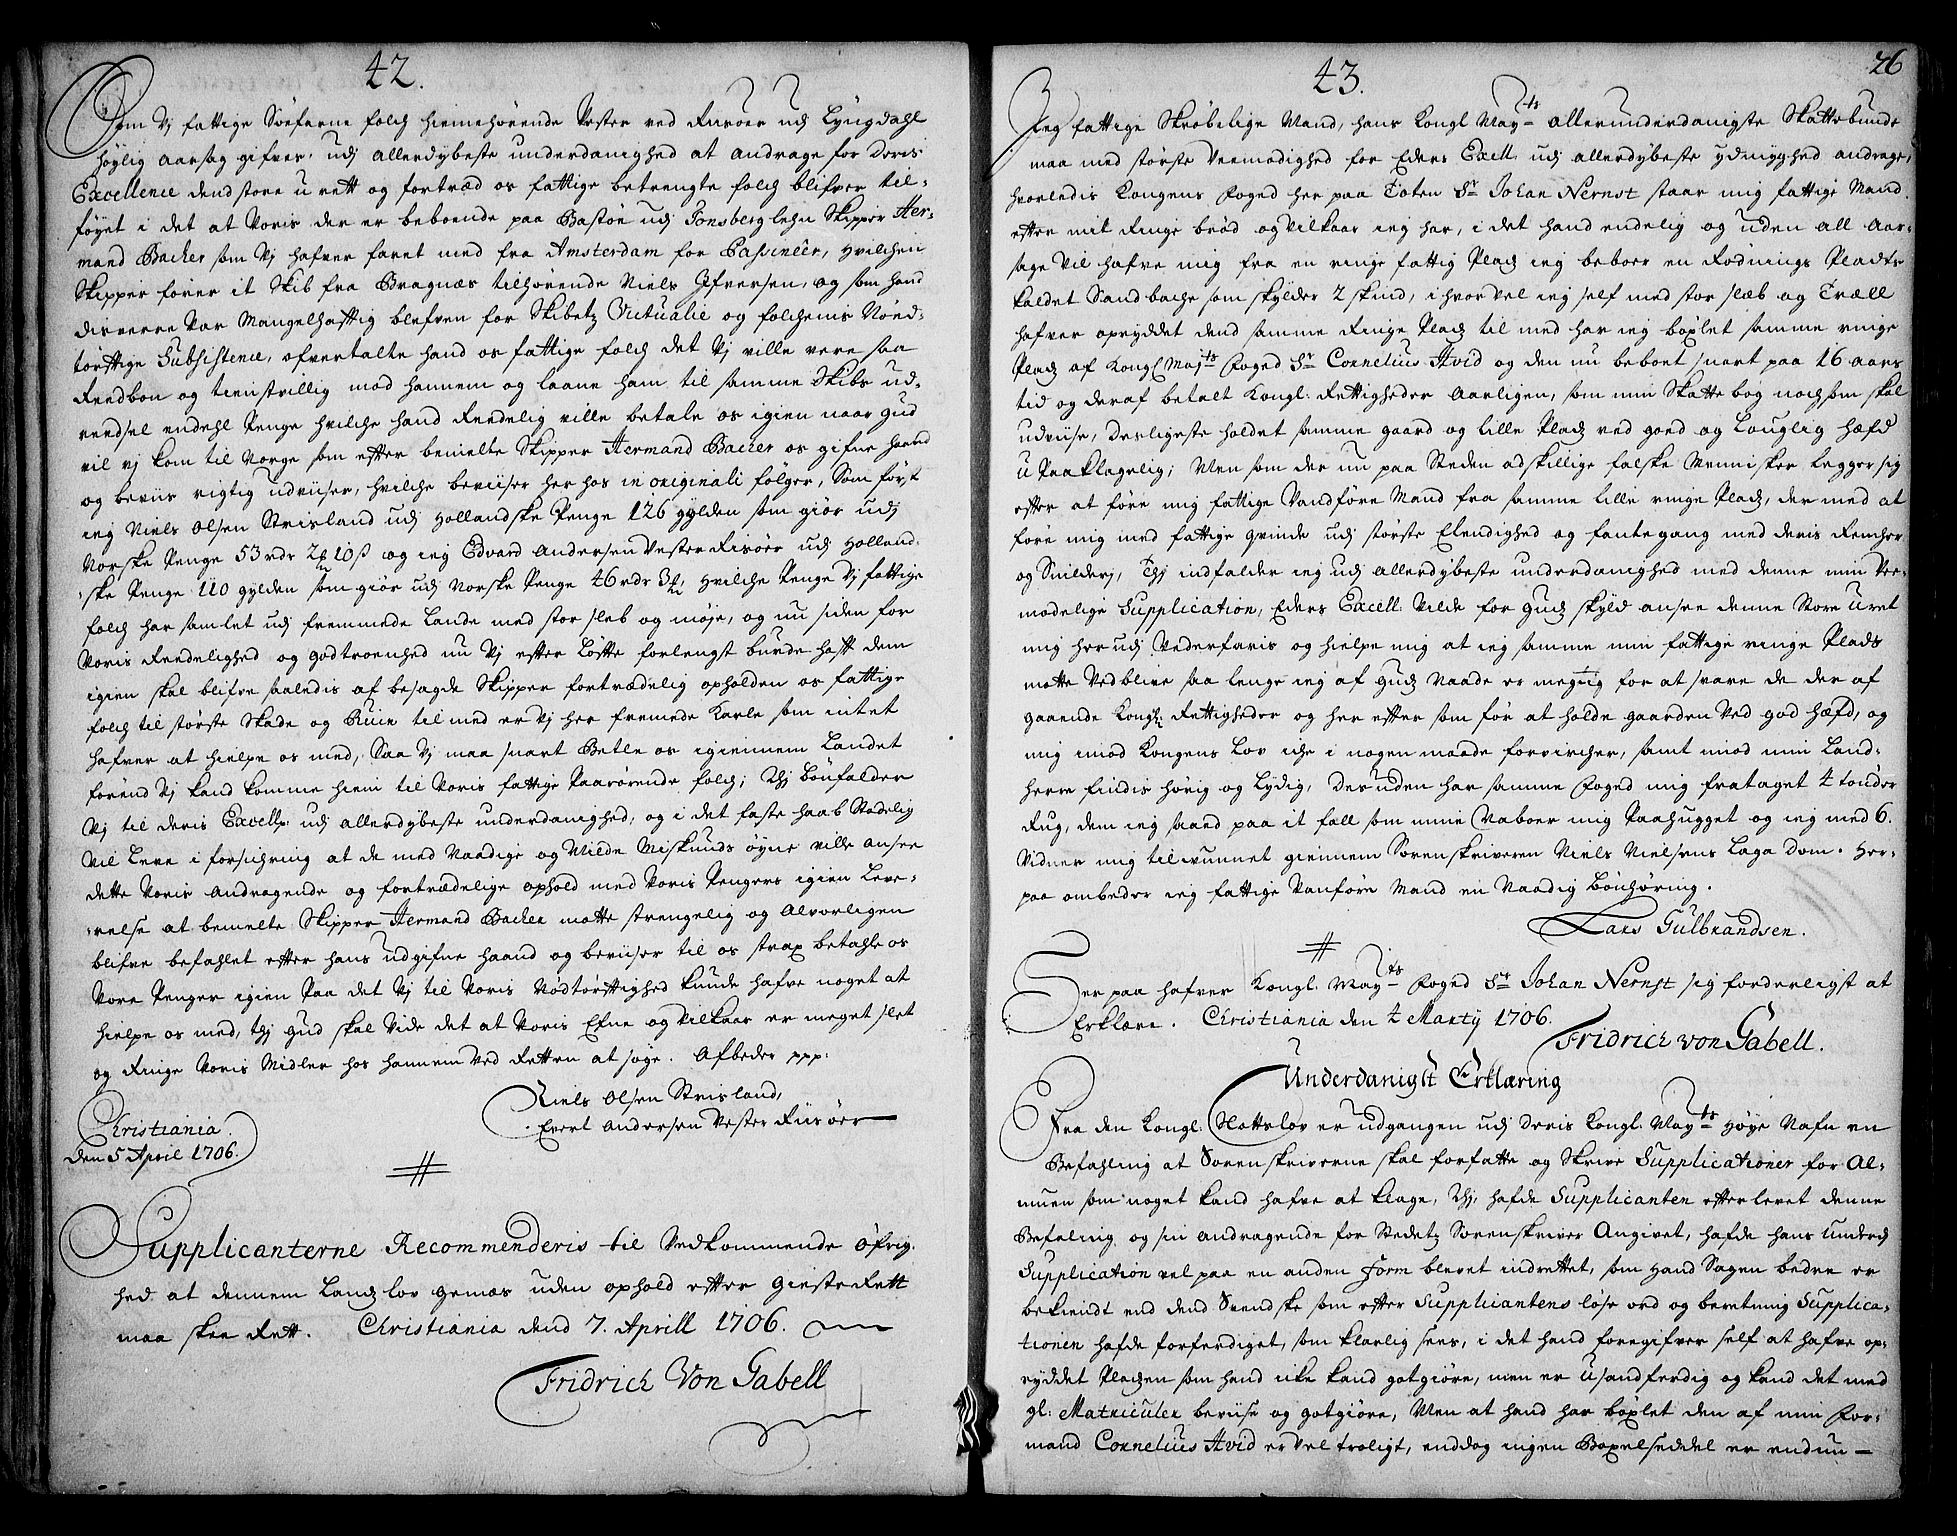 42.
Som Vj fattige Søefarne folch hiemehørende Vester ved Fiisøer udj Lyngdahl
høylig aarsag gifves, udj allerdybeste underdanighed at andrage for Deris
Excellence dend store urett og fortræd os fattige betrengte folch blifver til-
føyet i det at Voris der er beboende paa Bastøe udj Tonsberg lehn Skipper Her-
mand Backer som Vj hafver faret med fra Amsterdam for Passineer, hvilchen
Skipper fører it Skib fra Bragnæs tilhørende Niels Ifversen, og som hand
disverre var Mangelhafftig blefven for Skibetz Victualie og folchenis Nød-
tørfftige Subsistence, ofvertalte hand os fattige folch det Vj ville vere saa
Reedbon og tienstvillig mod hannem og laane ham til samme Skibs ud-
reedsel endehl Penge hvilche hand Reedelig ville betale os igien naar Gud
vil vj kom til Norge som efter bemelte Skipper Hermand Backer os gifne haand
og beviis rigtig udviiser, hvilche beviiser her hos in originali følger, Som først
ieg Niels Olsen Strisland udj Hollandske Penge 126 gylden som giør udj
Norske Penge 53 rdr 2 ß 10 ß og ieg Edvard Andersen Vester Risøer udj Holland-
ske Penge 110 gylden som giør udj Norske Penge 46 rdr 3 ß, hvilche Penge Vj fattige
folch har samlet udj fremmede Lande med stor sleb og møje, og nu siden for
Voris Reedelighed og godtroenhed nu Vj efter Løfte forlengst burde hafft dem
igien skal blifve saaledis af besagde Skipper fortrædelig opholden os fattige
folch til største Skade og Ruin til med er Vj her fremede Karle som intet
hafver at hielpe os med, Saa Vj maa snart Betle os igiennem Landet
førend Vj kand komme hiem til Voris fattige Paarørende folch; Thj bønfalder
Vj til deris Excell: udj allerdybeste underdanighed, og i det faste haab Stedelig
vil Leve i forsichring at de med Naadige og Milde Miskunds øyne ville ansee
dette Voris andragende og fortrædelige ophold med Voris Pengers igien Leve-
relse at bemelte Skipper Hermand Backer motte strengelig og Alvorligen
blifve befahlet efter hans udgifne haand og beviiser til os strax betahle os
Vore Penger igien Paa det Vj til Voris Nødtørfftighed kunde hafve noget at
hielpe os med, thj Gud skal Vide det at Voris Efne og Vilkaar er meget slet
og Ringe Voris Midler hos hannem ved Retten at søge. Afbeder ppp:
Niels Olsen Strisland,
Evert Andersen Vester Riisøer
Christiania
den 5 April 1706.
Supplicanterne Recommenderis til Vedkommende øfrig-
hed at dennem Landslov gemæs uden ophold efter Giesterett
maa skee Rett. Christiania dend 7. Aprill 1706.
Fridrich Von Gabell
43.
26
Jeg fattige Skrøbelige Mand, hans Kongl May:ts allerunderdanigste Skattebunde
maa med største Veemodighed for Eders Excell: udj allerdybeste ydmyghed andrage,
hvorledis Kongens Foged her paa Toten Sr Johan Nernst staar mig fattige Mand
efter mit Ringe brød og Vilkaar ieg har, i det hand endelig og uden all Aar-
sage vil hafve mig fra en ringe fattig Plads ieg beboer en Rødnings Plads
kaldet Sandbache som skylder 2 skind, i hvorvel ieg self med stor slæb og Træll
hafver opryddet dend samme Ringe Plads til med har ieg bøxlet samme ringe
Plads af Kongl May:ts Foged Sr Cornelius Hvid og den nu beboet snart paa 16 aars
tid og deraf betalt Kongl: Rettigheder Aarligen, som min Skatte bog nochsom skal
udviise, desligeste holdet samme gaard og lille Plads ved goed og Louglig hæfd
u Paaklagelig; Men som der nu paa Steden adskillige falske Mennisker legger sig
efter at føre mig fattige Vandføre Mand fra samme lille ringe Plads, der med at
føre mig med fattige qvinde udj største Elendighed og fantegang med deris Rencher
og Snilderj, Thj indfalder ieg udj allerdybeste underdanighed med denne min Vee-
modelige Supplication, Eders Excell: Vilde for Guds skyld ansee denne Store Uret
mig her udj Vederfaris og hielpe mig at ieg samme min fattige ringe Plads
motte Ved blive saa lenge ieg af Guds Naade er megtig for at svare de der af
gaaende Kongl: Rettigheder og her efter som før at holde gaarden Ved god Hæfd, og
mig imod Kongens Lov iche i nogen maade forvircher, samt imod min Land-
herre findis hørig og Lydig, Desuden har samme Foged mig frataget 4 tønder
Rug, dem ieg saaed paa it fall som mine Naboer mig Paahugget og ieg med 6.
Vidner mig tilvunnet giennem Sorenskriveren Niels Nielsens Laga Dom. Her-
paa ombeder ieg fattige Vanføre Mand en Naadig Bønhøring.
Lars Gulbrandsen.
Her paa hafver Kongl: May:ts Foged Sr Johan Nernst sig forderligst at
Erklære. Christiania den 4 Martij 1706.
Fridrich von Gabell.
Underdanigst Erklæring
Fra den Kongl: Slottslov er udgangen udj Deris Kongl: May:ts Høye Nafn en
Befahling at Sorenskriverne skal forfatte og Skrive Supplicationer for Al-
muen som noget kand hafve at klage, Thj hafde Supplicanten efterlevet denne
Befeling og sin andragende for Stedetz Sorenskriver Angivet, hafde hans underd
Supplication vel paa en anden Form blevet indrettet, som Hand Sagen bedre er
bekiendt end dend Svendske som efter Supplicantens løse ord og beretning Supplica-
tionen hafde forferdiget, som klarlig sees, i det hand foregifver self at hafve op-
ryddet Pladsen som hand icke kand gotgiøre, men er Usandferdig og kand det med
gl: Matriculer beviise og gotgiøre, Men at hand har bøxlet den af min For-
mand Cornelius Hvid er vel troligt, enddog ingen Bøxelseddel er endnu